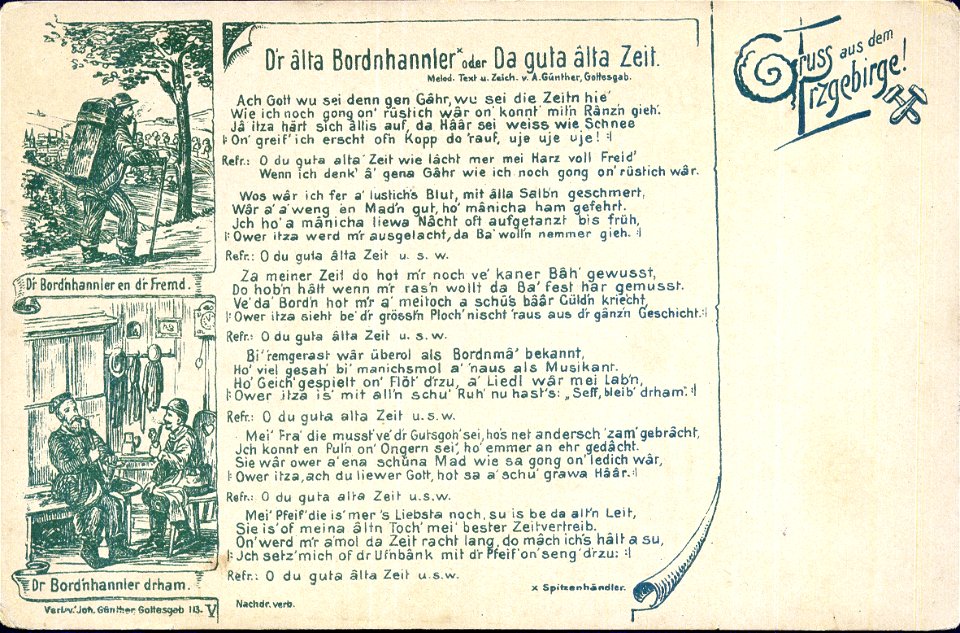 D'r âlta Bordnhannler x oder Da guta âlta Zeit.
Melod. Text u. Zeich. v. A. Günther, Gottesgab.
Ach Gott wu sei denn gen Gâhr, wu sei die Zeitn hie'
Wie ich noch gong on' rüstich wâr on' konnt' mit'n Rânz'n gieh'.
Jâ itza härt sich âllis auf, da Hââr sei weiss wie Schnee
|: On' greif' ich erscht ofn Kopp do 'rauf, uje uje uje! :|
Refr.: O du guta alta' Zeit wie lâcht mer mei Harz voll Freid'
Wenn ich denk' â' gena Gâhr wie ich noch gong on' rüstich wâr.
Wos wâr ich fer a' lustich's Blut, mit âlla Salb'n geschmert,
Wâr a' a' weng en Mad'n gut, ho' mânicha ham gefehrt.
Jch ho' a mânicha liewa Nâcht oft aufgetanzt bis früh,
|: Ower itza werd m'r ausgelacht, da Ba' woll'n nemmer gieh. :|
Refr.: O du guta âlta Zeit u. s. w.
Za meiner Zeit do hot m'r noch ve' kaner Bâh' gewusst,
Do hob'n hâlt wenn m'r ras'n wollt da Ba' fest har gemusst.
Ve' da' Bord'n hot m'r a' meitoch a schü's bââr Güld'n kriecht,
|: Ower itza sieht be' d'r gröss'n Ploch' nischt 'raus aus d'r gânz'n Geschicht. :|
Refr.: O du guta âlta Zeit u. s. w.
Bi' 'remgerast wâr überol als Bordnmâ' bekannt,
Ho' viel gesah' bi' manichsmol a' 'naus als Musikant.
Ho' Geich' gespielt on' Flöt' d'rzu, a' Liedl wâr mei Lab'n,
|: Ower itza is' mit all'n schu' Ruh' nu hast's: „Seff, bleib' drham". :|
Refr.: O du guta alta Zeit u.s.w.
Mei' Fra' die musst ve' d'r Gutsgoh' sei, ho's net andersch 'zam' gebrâcht,
Jch konnt en Puln on' Ongern sei', ho' emmer an ehr gedâcht.
Sie wâr ower a' ena schüna Mad wie sa gong on' ledich wâr,
|: Ower itza, ach du liewer Gott, hot sa a' schu' grawa Hââr. :|
Refr.: O du guta alta Zeit u.s.w.
Mei' Pfeif' die is' mer 's Liebsta noch, su is be da alt'n Leit,
Sie is' of meina âltn Toch' mei' bester Zeitvertreib.
On' werd m'r a'mol da Zeit racht lang, do mâch ich's hâlt a su,
|: Jch setz' mich of d'r Ufnbânk mit d'r Pfeif' on' seng' d'rzu: :|
Refr.: O du guta âlta Zeit u.s.w.
x Spitzenhändler.
Nachdr. verb.
Gruss aus dem
Erzgebirge!
D'r Bord'nhannler en d'r Fremd.
Dr Bord'nhannler drham.
Verl. v. Joh. Günther, Gottesgab 113. V